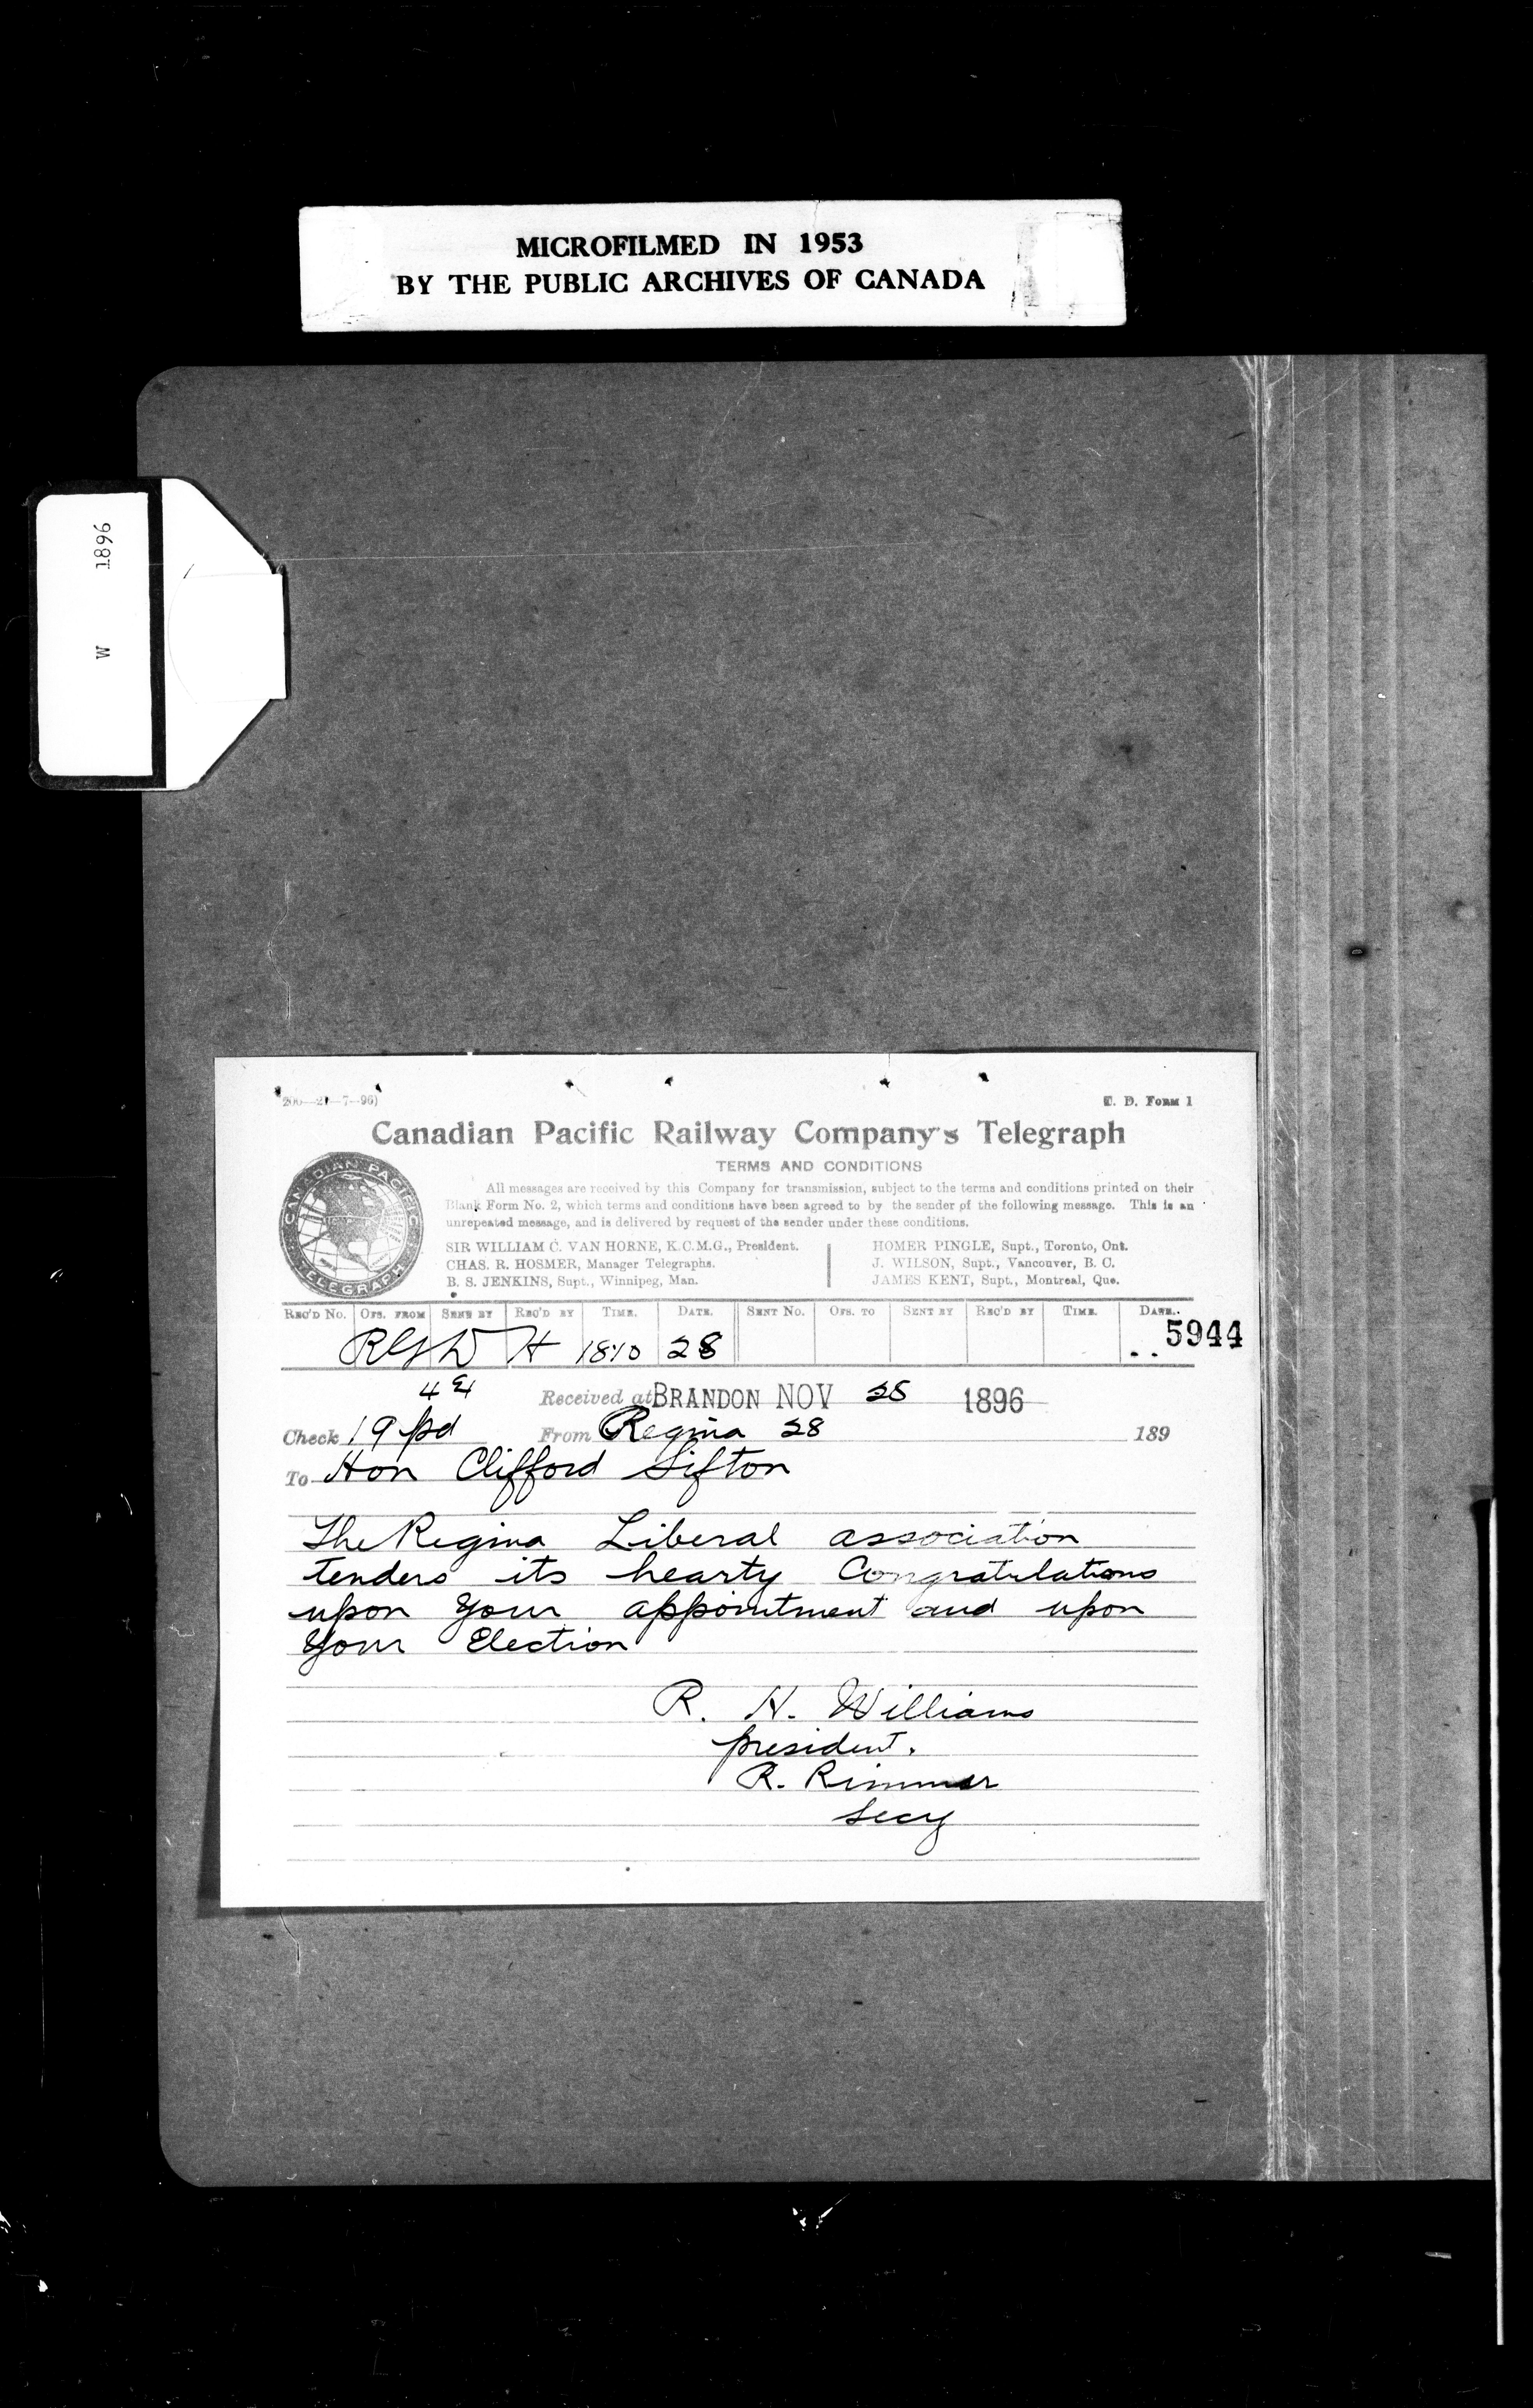 MICROFILMED IN 1953
BY THE PUBLIC ARCHIVES OF CANADA
W 1896
200—21—7—96)
T. D. FORM 1
Canadian Pacific Railway Company's Telegraph
TERMS AND CONDITIONS
CANADIAN PACIFIC
TELEGRAPH
All messages are received by this Company for transmission, subject to the terms and conditions printed on their
Blank Form No. 2, which terms and conditions have been agreed to by the sender of the following message. This is an
unrepeated message, and is delivered by request of the sender under these conditions.
SIR WILLIAM C. VAN HORNE, K.C.M.G., President.
CHAS. R. HOSMER, Manager Telegraphs.
B. S. JENKINS, Supt., Winnipeg, Man.
HOMER PINGLE, Supt., Toronto, Ont.
J. WILSON, Supt., Vancouver, B. C.
JAMES KENT, Supt., Montreal, Que.
REC'D NO. OFS. FROM SENT BY REC'D BY TIME. DATE. SENT NO. OFS. TO SENT BY REC'D BY TIME. DATE.
H 1810 28 5944
Received at BRANDON NOV 28 1896
Check 19 pd From Regina 28 189
To Hon Clifford Sifton
The Regina Liberal association
tenders its hearty Congratulations
upon your appointment and upon
your Election
R. H. Williams
president.
R. Rimmer
Secy